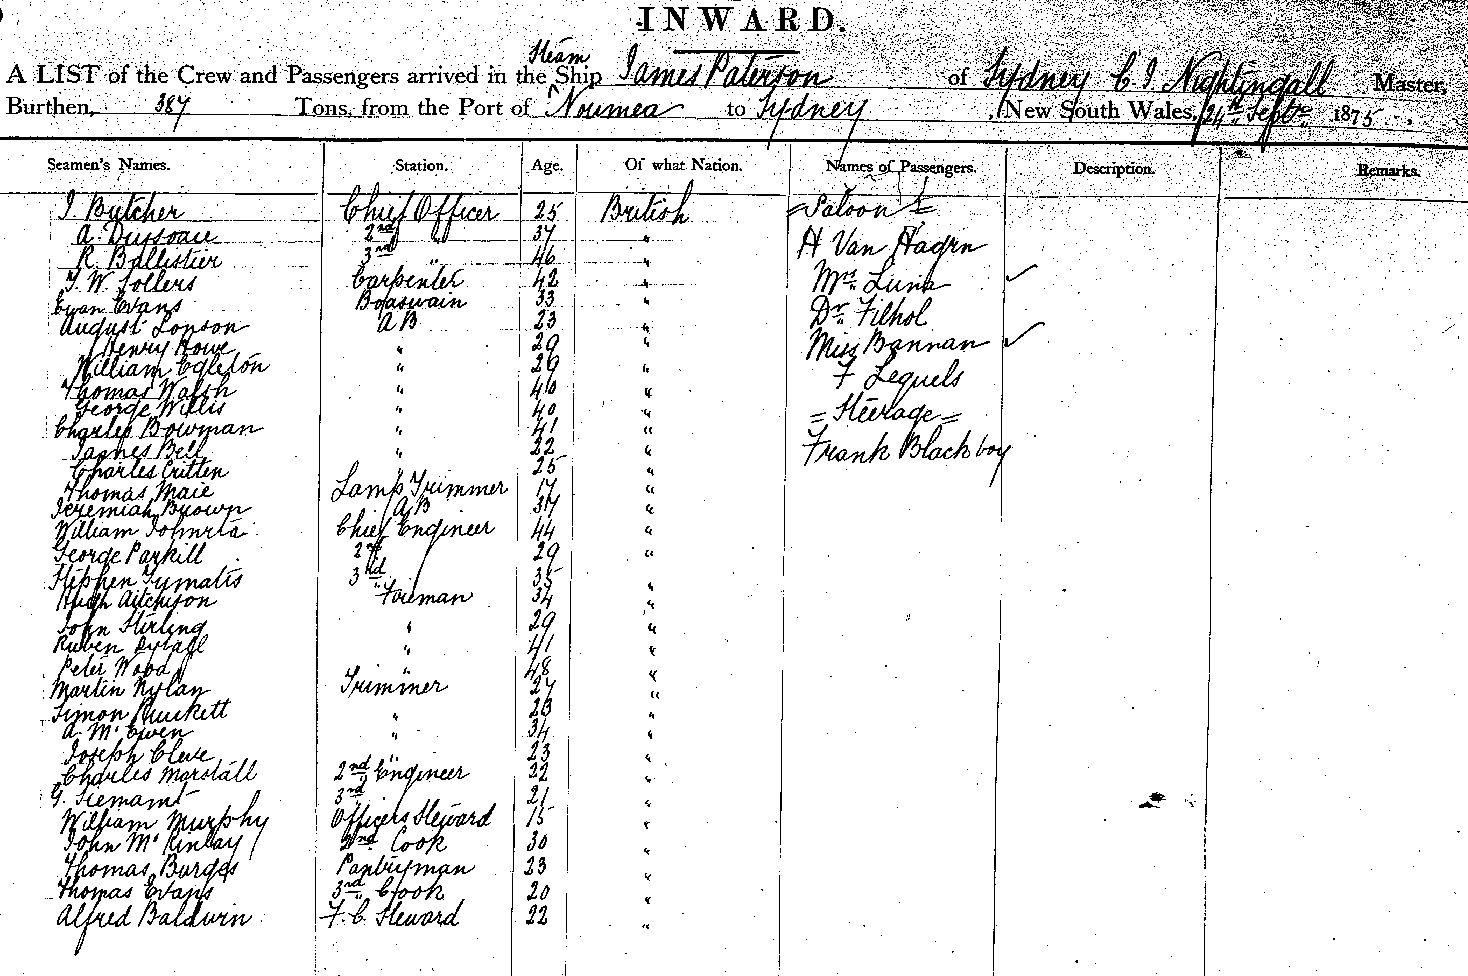 INWARD.
A LIST of the Crew and Passengers arrived in the Steam Ship James Paterson of Sydney C I Nightingall Master,
Burthen, 387 Tons, from the Port of Noumea to Sydney, New South Wales, 24th Septr 1875
Seamen's Names. Station. Age. Of what Nation. Names of Passengers. Description. Remarks.
J Butcher Chief Officer 25 British =Saloon=
A. 2nd " 37 " H Van Hagen
R. Ballistier 3rd " 46 "
T. W. Sollers Carpenter 42 " Mrs Luna ✓
Evan Evans Boaswain 33 "
August Lonson A B 23 " Dr Filhol
Henry Howe " 29 " Miss Bannan ✓
William Egleton " 29 "
Thomas Walsh " 40 " F Lequels
George Willis " 40 " =Steerage=
Charles Bowman " 41 "
James Bell " 22 " Frank Blackboy
Charles Critten 25 "
Thomas Maie Lamp Trimmer 17 "
Jeremiah Brown A B 37 "
William Chief Engineer 44 "
George Parkill 2nd 29 "
Stephen 3rd " 35 "
Hugh Aitchison Foreman 34 "
John Stirling " 29 "
Ruben " 41 "
Peter Wood " 48 "
Martin Nylan Trimmer 27 "
Simon " 23 "
A. Mc Ewen " 34 "
Joseph Cleve " 23 "
Charles Marstall 2nd Engineer 22 "
G. 3rd " 21 "
William Murphy Officers Steward 15 "
John Mc Kinlay 2nd Cook 30 "
Thomas Burges Pantryman 23 "
Thomas Evans 3rd Cook 20 "
Alfred Baldwin F. C. Steward 22 "